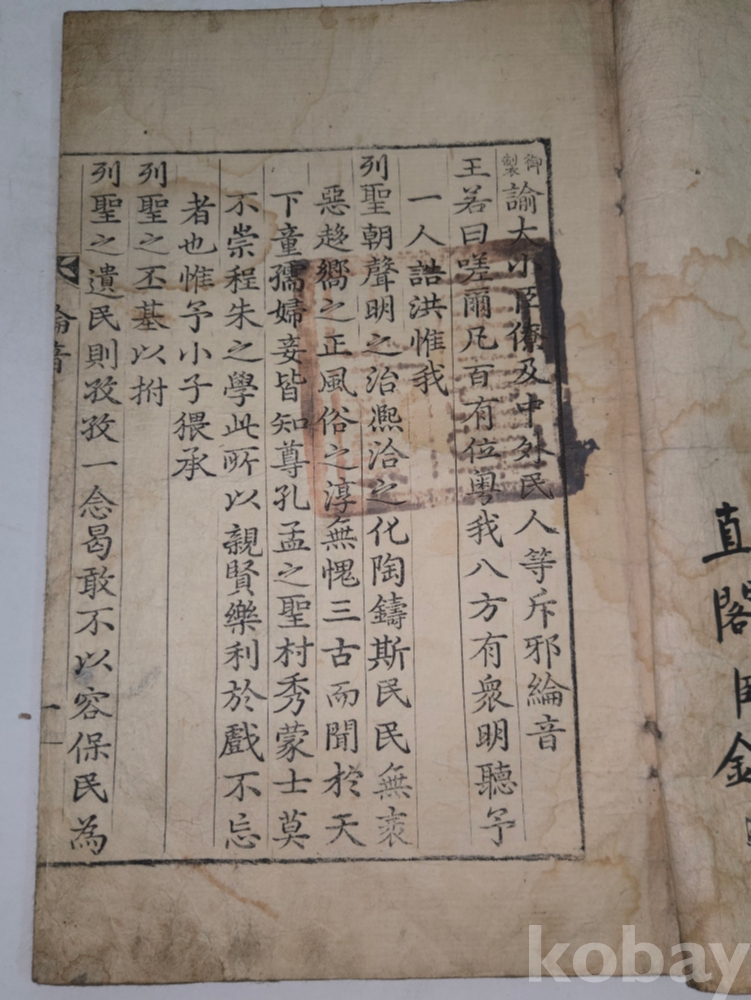 直閣臣金
御製諭大小臣僚及中外民人等斥邪綸音
王若曰嗟爾凡百有位粤我八方有衆明聽予
一人誥洪惟我
列聖朝聲明之治熈洽之化陶鑄斯民民無衺
惡趍嚮之正風俗之淳無愧三古而聞於天
下童孺婦妾皆知尊孔孟之聖村秀蒙士莫
不崇程朱之學此所以親賢樂利於戲不忘
者也惟予小子猥承
列聖之丕基以拊
列聖之遺民則孜孜一念曷敢不以容保民為
綸音 一
kobay